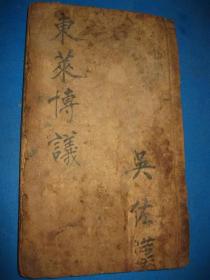 東萊博議
吳佐漢